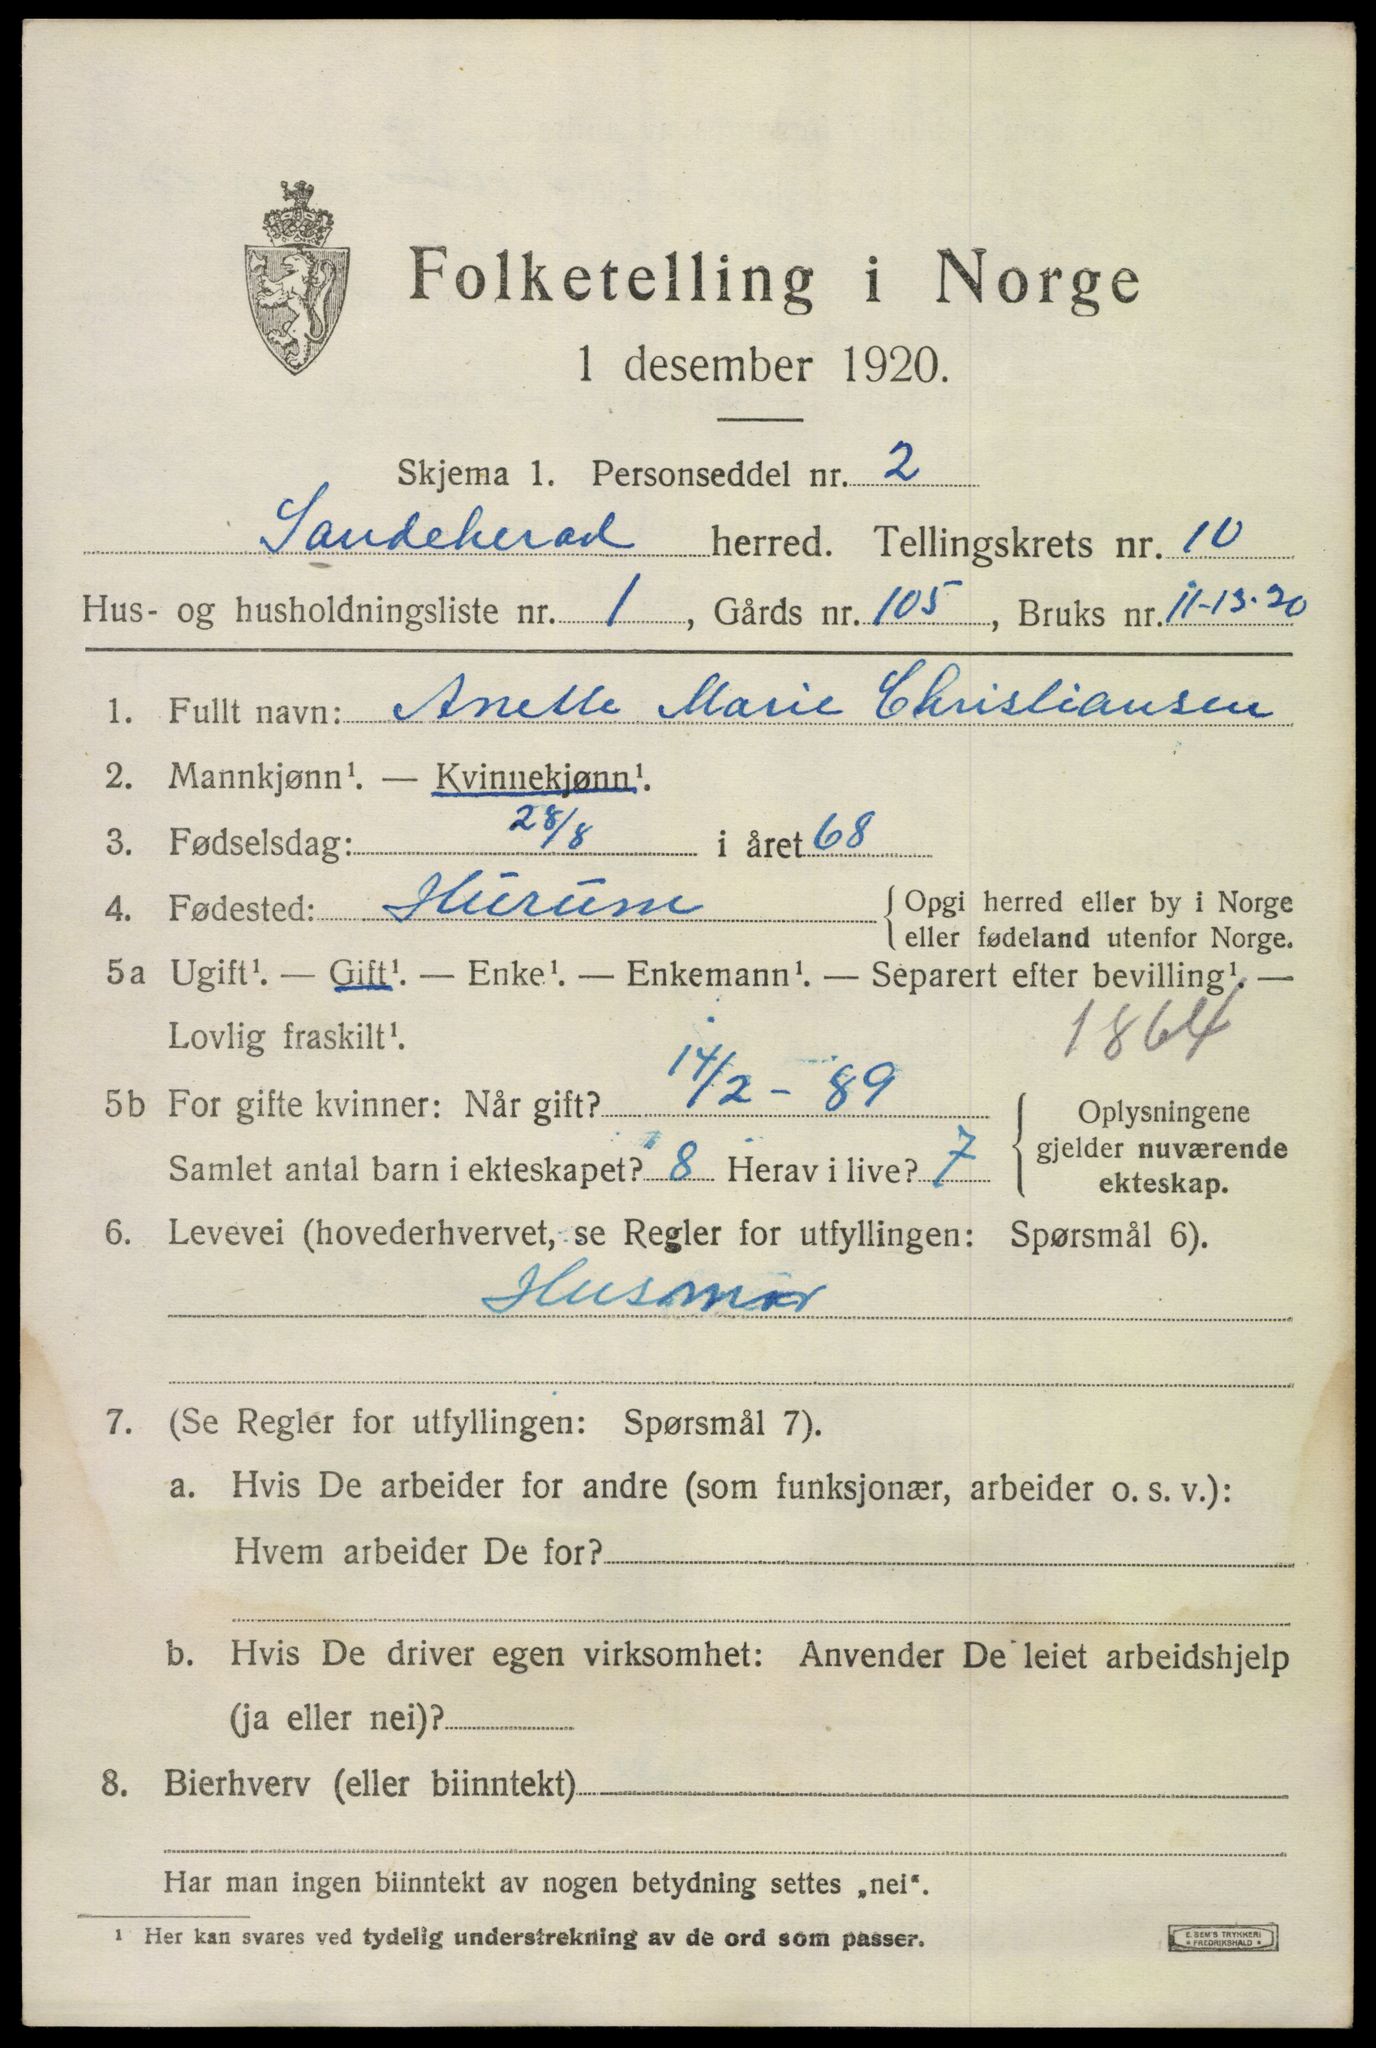 Folketelling i Norge
1 desember 1920.
Skjema 1. Personseddel nr. 2
Sandeherad herred. Tellingskrets nr. 10
Hus- og husholdningsliste nr. 1, Gårds nr. 105, Bruks nr. 11-13-20
1. Fullt navn: Anette Marie Christiansen
2. Mannkjønn¹. — Kvinnekjønn¹.
3. Fødselsdag: 28/8 i året 68
4. Fødested: Hurum { Opgi herred eller by i Norge
eller fødeland utenfor Norge.
5a Ugift¹. — Gift¹. — Enke¹. — Enkemann¹. — Separert efter bevilling¹. —
Lovlig fraskilt¹. 1864
5b For gifte kvinner: Når gift? 14/2 - 89
Samlet antal barn i ekteskapet? 8 Herav i live? 7
Oplysningene
gjelder nuværende
ekteskap.
6. Levevei (hovederhvervet, se Regler for utfyllingen: Spørsmål 6).
Husmor
7. (Se Regler for utfyllingen: Spørsmål 7).
a. Hvis De arbeider for andre (som funksjonær, arbeider o. s. v.):
Hvem arbeider De for?
b. Hvis De driver egen virksomhet: Anvender De leiet arbeidshjelp
(ja eller nei)?
8. Bierhverv (eller biinntekt)
Har man ingen biinntekt av nogen betydning settes „nei“.
¹ Her kan svares ved tydelig understrekning av de ord som passer.
E. SEM'S TRYKKERI
* FREDRIKSHALD *